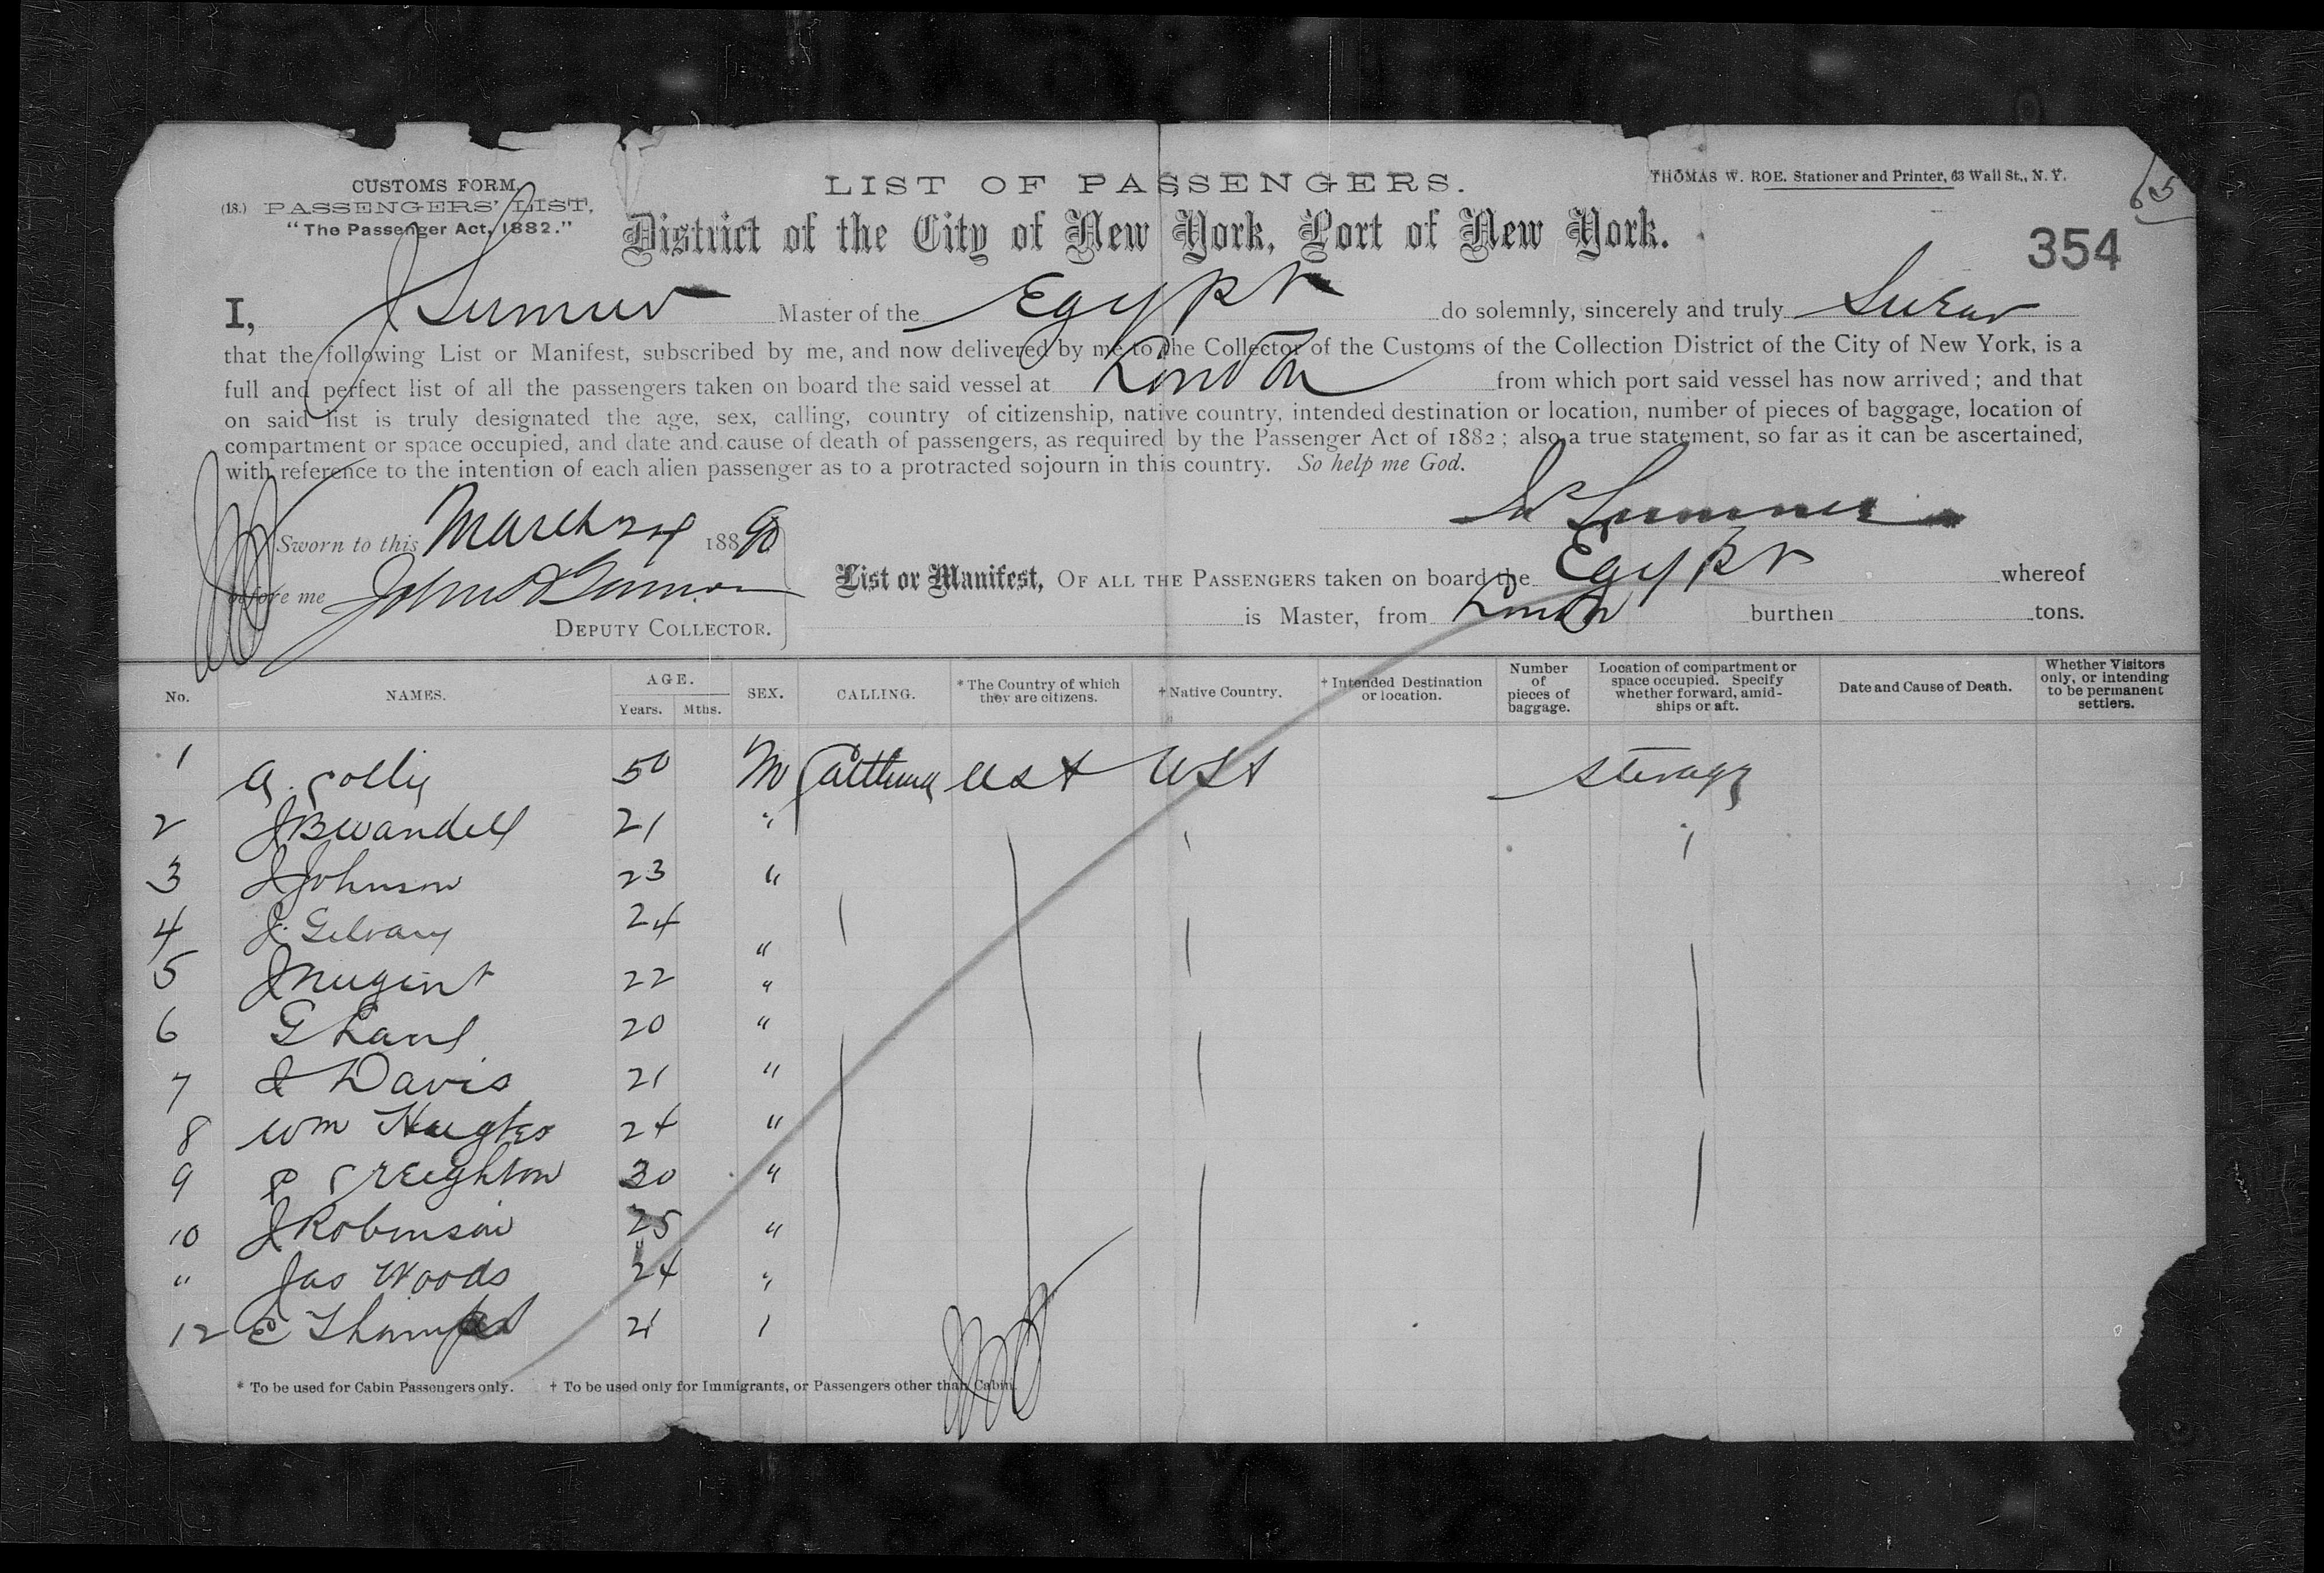 CUSTOMS FORM.
(18.) PASSENGERS' LIST,
"The Passenger Act, 1882."
LIST OF PASSENGERS.
THOMAS W. ROE. Stationer and Printer, 63 Wall St., N. Y.
65
District of the City of New York, Port of New York.
354
I, J Sumner Master of the Egypt do solemnly, sincerely and truly Swear
that the following List or Manifest, subscribed by me, and now delivered by me to the Collector of the Customs of the Collection District of the City of New York, is a
full and perfect list of all the passengers taken on board the said vessel at London from which port said vessel has now arrived; and that
on said list is truly designated the age, sex, calling, country of citizenship, native country, intended destination or location, number of pieces of baggage, location of
compartment or space occupied, and date and cause of death of passengers, as required by the Passenger Act of 1882; also a true statement, so far as it can be ascertained,
with reference to the intention of each alien passenger as to a protracted sojourn in this country. So help me God.
Sumner
Sworn to this March 24 188 90
before me John
DEPUTY COLLECTOR.
List or Manifest, OF ALL THE PASSENGERS taken on board the Egypt whereof
is Master, from London burthen tons.
No. NAMES. AGE. Years. Mths. SEX. CALLING. * The Country of which they are citizens. † Native Country. † Intended Destination or location. Number of pieces of baggage. Location of compartment or space occupied. Specify whether forward, amidships or aft. Date and Cause of Death. Whether Visitors only, or intending to be permanent settlers.
1 A. 50 M Cattleman USA USA Sterage
2 J B Wandell 21 "
3 J Johnson 23 "
4 J. Gilvary 24 "
5 J Nugent 22 "
6 G Lane 20 "
7 J Davis 21 "
8 Wm Hughes 24 "
9 P Creighton 30 "
10 J Robinson 25 "
" Jas Woods 24 "
12 E 21
* To be used for Cabin Passengers only. † To be used only for Immigrants, or Passengers other than Cabin.